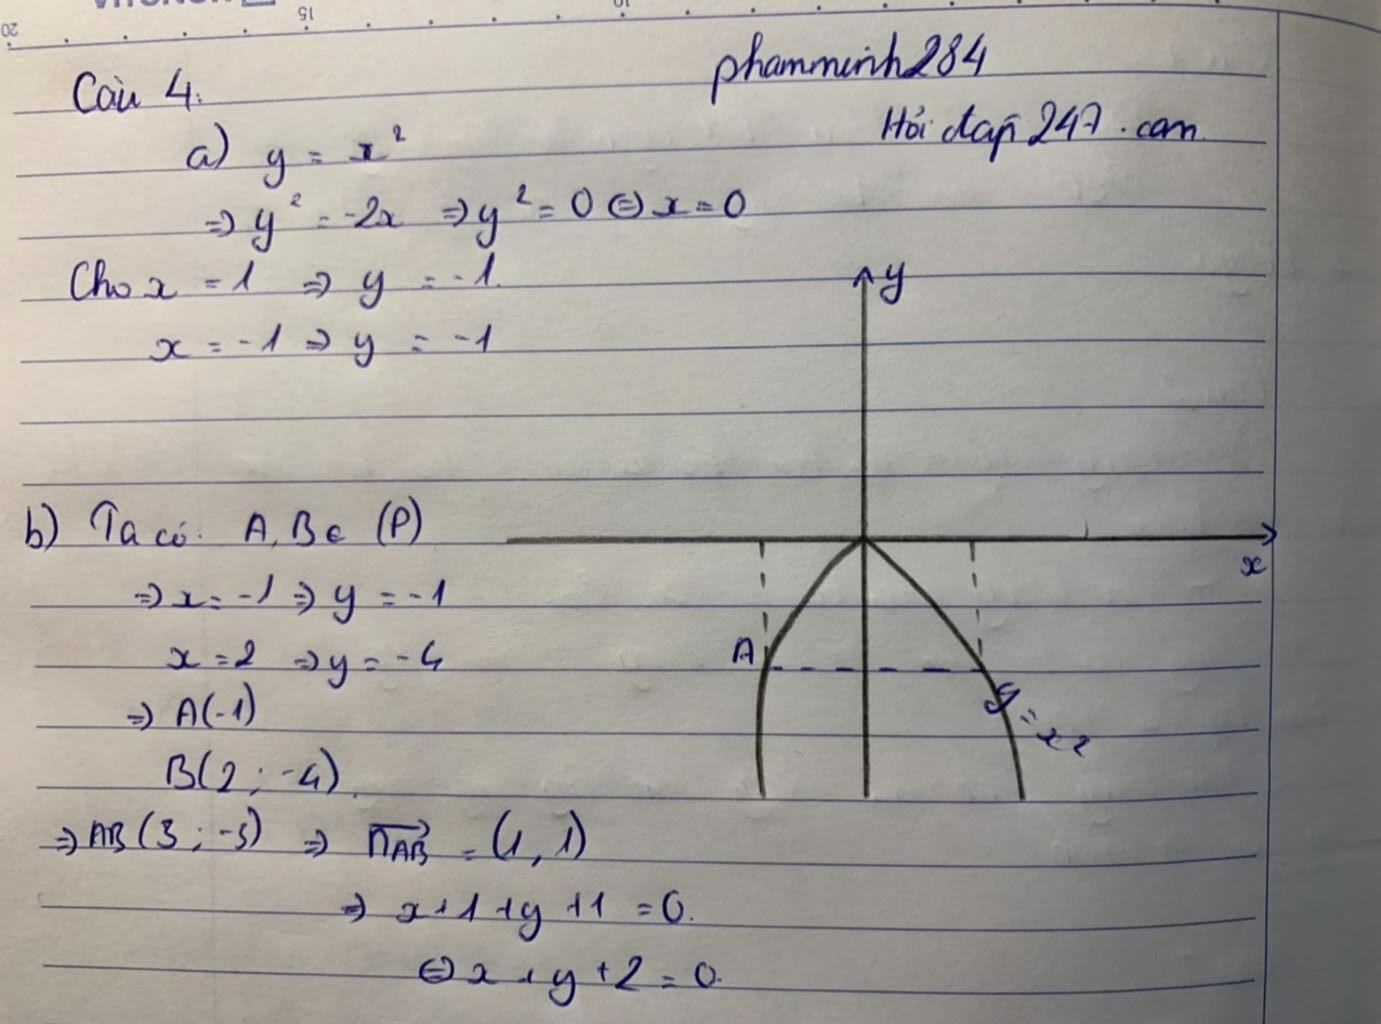 20 15 10
Câu 4:
phamminh284
Hỏi đáp 247.com
a) y = x²
⇒ y² = -2x ⇒ y² = 0 ⇔ x = 0
Cho x = 1 ⇒ y = -1.
x = -1 ⇒ y = -1
y
x
A
y = x²
b) Ta có. A, B ∈ (P)
⇒ x = -1 ⇒ y = -1
x = 2 ⇒ y = -4
⇒ A(-1)
B(2; -4).
⇒ AB(3; -3) ⇒ n⃗AB = (1, 1)
⇒ x+1+y+1 = 0.
⇔ x + y + 2 = 0.